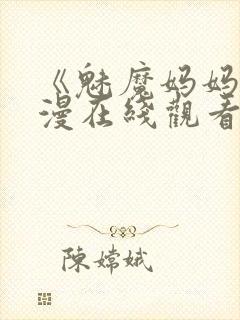 《魅魔妈妈
漫在线觀看
陳嫦娥